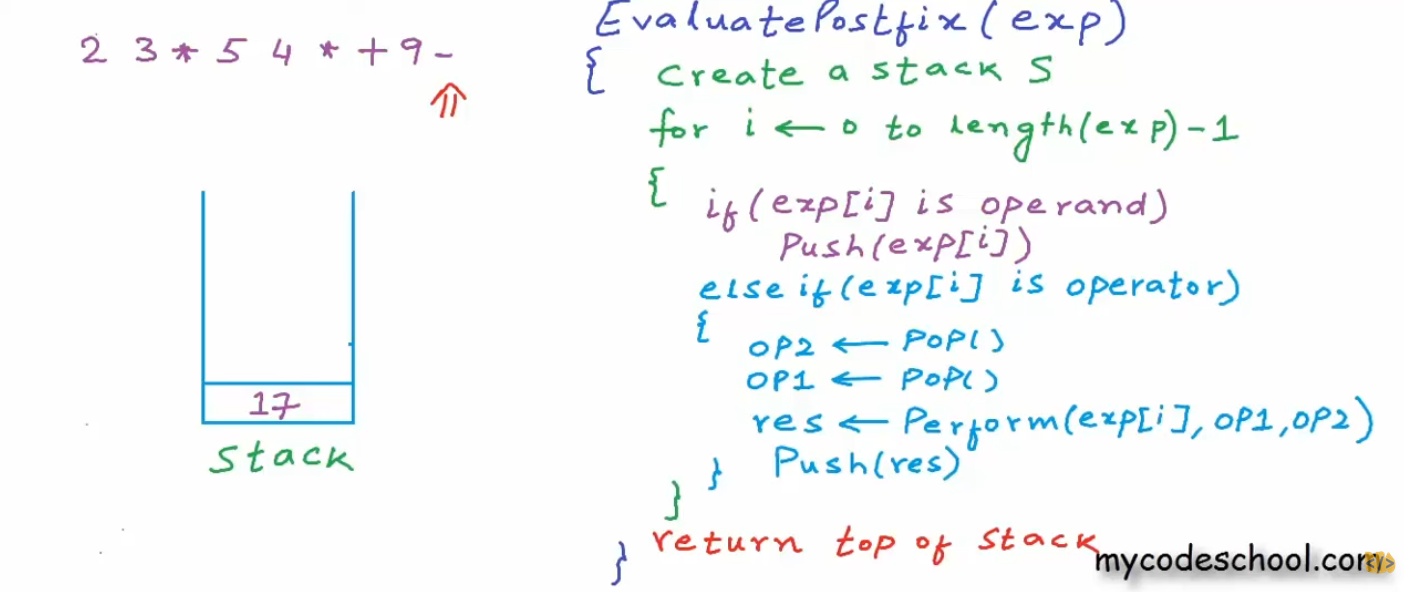 2 3 * 5 4 * + 9 -
17
Stack
EvaluatePostfix(exp)
{ Create a stack S
for i ← 0 to length(exp)-1
{ if(exp[i] is operand)
Push(exp[i])
else if(exp[i] is operator)
{ OP2 ← POP()
OP1 ← POP()
res ← Perform(exp[i], OP1, OP2)
} Push(res)
}
} return top of stack
mycodeschool.com